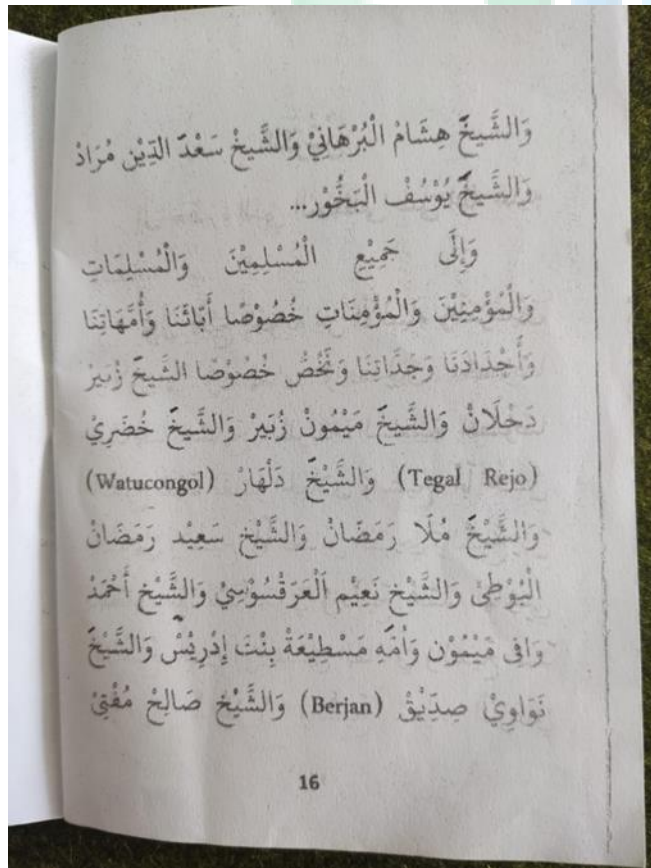 وَالشَّيخّ هِشَامْ الْبُرْهَانِيْ وَالشَّيخْ سَعْدَ الدِّيْن مُرَادْ
وَالشَّيخّ يُوْسُفْ الْبَخُّوْر...
وَإِلَى جَمِيْعِ الْمُسْلِمِيْنَ وَالْمُسْلِمَاتِ
وَالْمُؤْمِنِيْنَ وَالْمُؤْمِنَاتِ خُصُوْصًا أَبَائَنَا وَأُمَّهَاتِنَا
وَأَجْدَادَنَا وَجَدَّاتِنَا وَنَخُصُّ خُصُوْصًا الشَّيخّ زُبَيرْ
دَحْلَانْ وَالشَّيخّ مَيْمُونْ زُبَيرْ وَالشَّيخّ خُضَرِيْ
(Tegal Rejo) وَالشَّيْخّ دَلْهَارْ (Watucongol)
وَالشَّيْخّ مُلَا رَمَضَانْ وَالشَّيْخ سَعِيْد رَمَضَانْ
الْبُوْطِيْ وَالشَّيْخ نَعِيْم اَلْعَرَقْسُوْسِيْ وَالشَّيْخ أَحْمَدْ
وَافِى مَيْمُوْن وَأُمِّهِ مَسْطِيْعَةْ بِنْتَ إِدْرِيْسْ وَالشَّيْخّ
نَوَاوِيْ صِدِّيْقْ (Berjan) وَالشَّيْخ صَالِحْ مُفْتِيْ
16